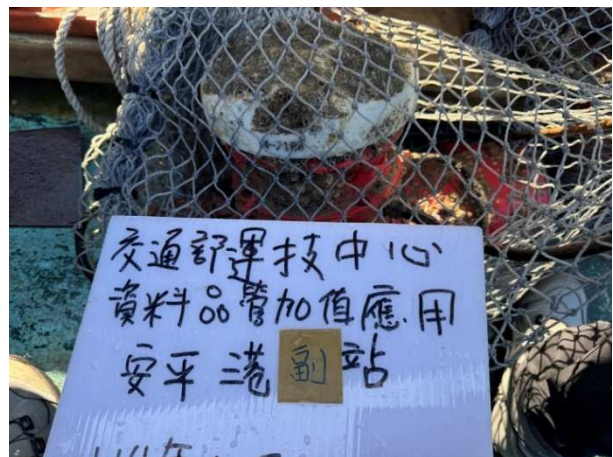 交通部運技中心
資料品管加值應用
安平港副站